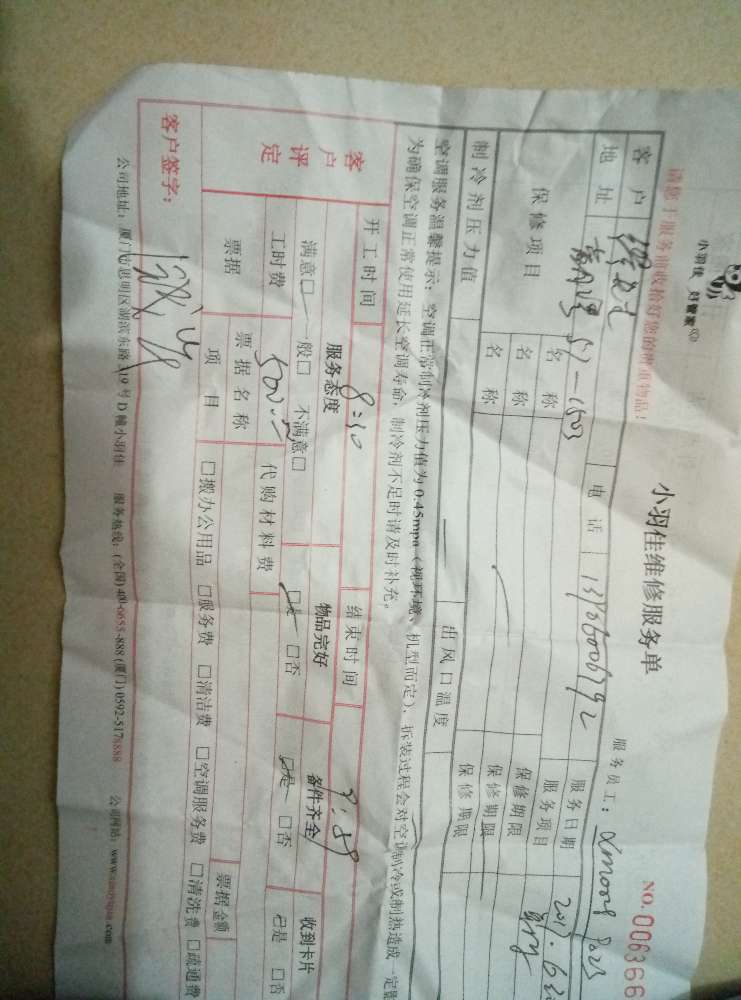 小羽佳 好管家
请您于服务前收拾好您的贵重物品!
小羽佳维修服务单
NO. 006366
服务员工:
客户
电话
服务日期
地址
51-1503
服务项目
保修项目
名称
保修期限
名称
保修期限
名称
保修期限
制冷剂压力值
出风口温度
空调服务温馨提示:空调正常制冷剂压力值为0.45mpa(视环境、机型而定)、拆装过程会对空调制冷或制热造成一定
为确保空调正常使用延长空调寿命,制冷剂不足时请及时补充。
开工时间
8:30
结束时间
客户评定
服务态度
物品完好
备件齐全
收到卡片
满意□ 一般□ 不满意□
□是 □否
□是 □否
□是 □否
工时费
代购材料费
票据
票据名称
票据金额
项目
□搬办公用品 □服务费 □清洁费 □空调服务费 □清洗费 □疏通费
客户签字:
公司地址:厦门市思明区湖滨东路319号D幢小羽佳 服务热线:(全国)400-0655-888 (厦门)0592-5178888 公司网站: